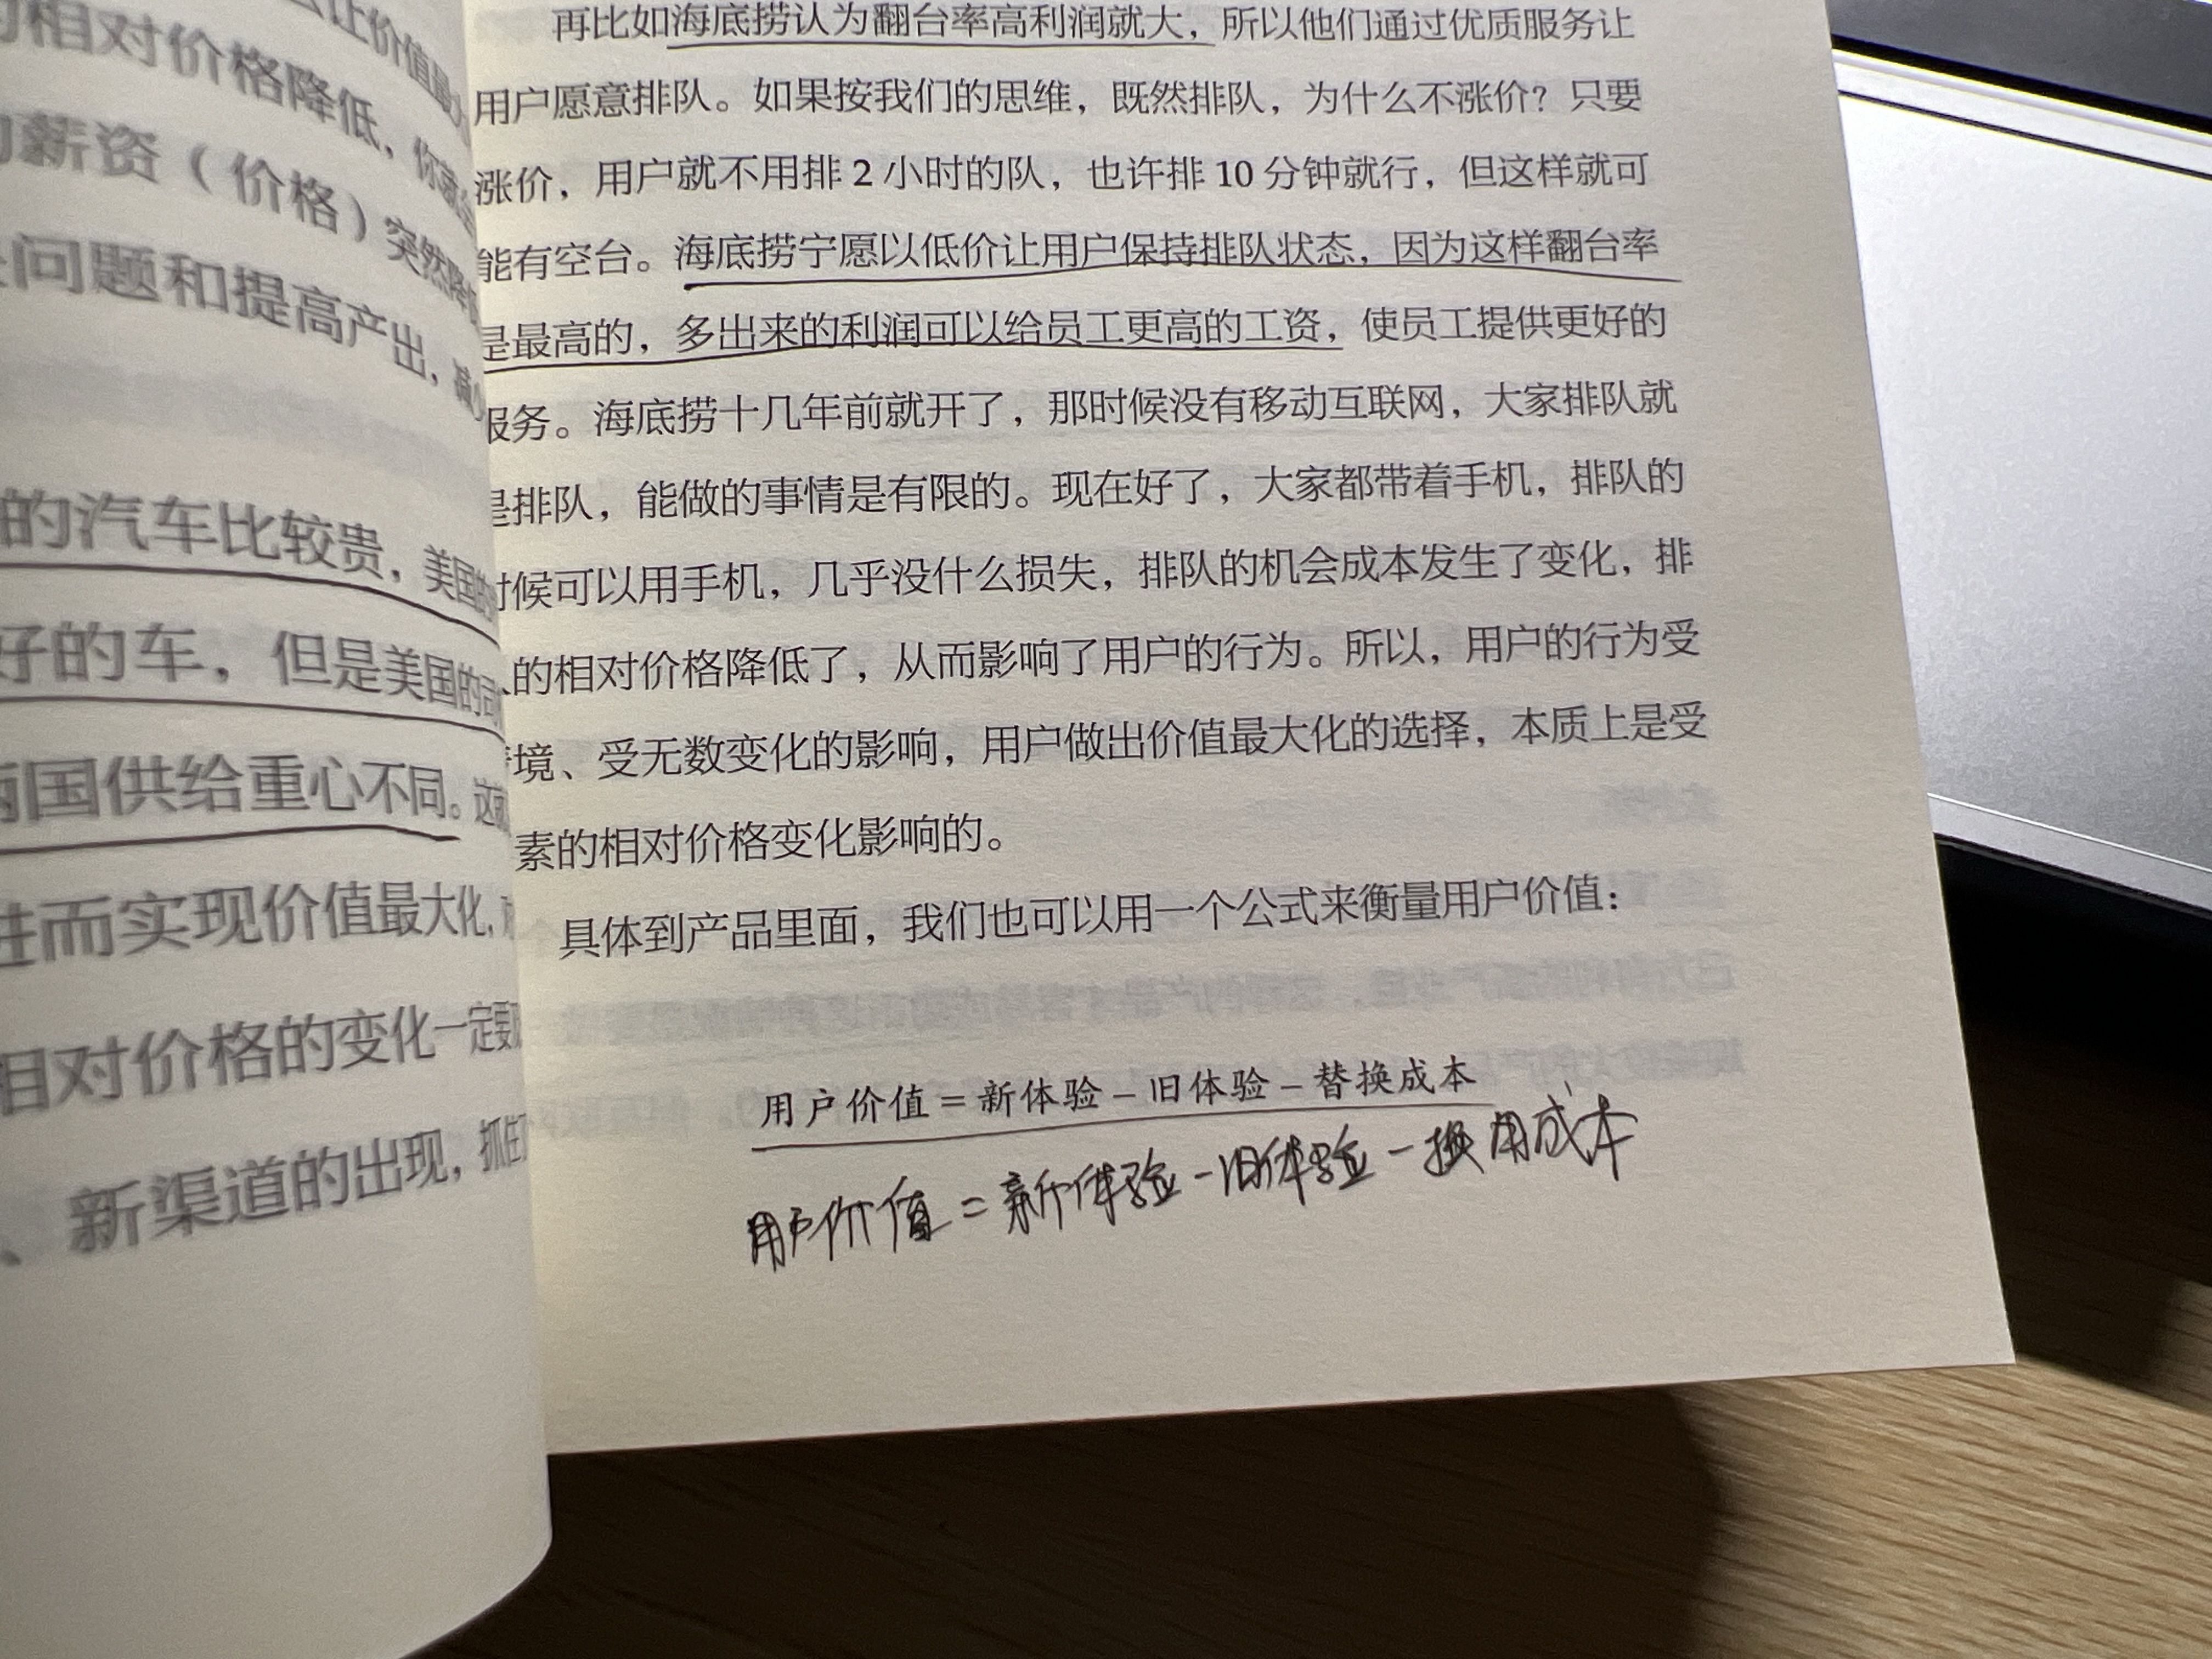 让价值最
相对价格降低，你就会
薪资（价格）突然降低
问题和提高产出，减少
的汽车比较贵，美国的
好的车，但是美国的司
国供给重心不同。这就
进而实现价值最大化，
相对价格的变化一定要
、新渠道的出现，抓住
再比如海底捞认为翻台率高利润就大，所以他们通过优质服务让
用户愿意排队。如果按我们的思维，既然排队，为什么不涨价？只要
涨价，用户就不用排 2 小时的队，也许排 10 分钟就行，但这样就可
能有空台。海底捞宁愿以低价让用户保持排队状态，因为这样翻台率
是最高的，多出来的利润可以给员工更高的工资，使员工提供更好的
服务。海底捞十几年前就开了，那时候没有移动互联网，大家排队就
是排队，能做的事情是有限的。现在好了，大家都带着手机，排队的
时候可以用手机，几乎没什么损失，排队的机会成本发生了变化，排
的相对价格降低了，从而影响了用户的行为。所以，用户的行为受
境、受无数变化的影响，用户做出价值最大化的选择，本质上是受
素的相对价格变化影响的。
具体到产品里面，我们也可以用一个公式来衡量用户价值：
用户价值＝新体验－旧体验－替换成本
用户价值＝新体验－旧体验－换用成本